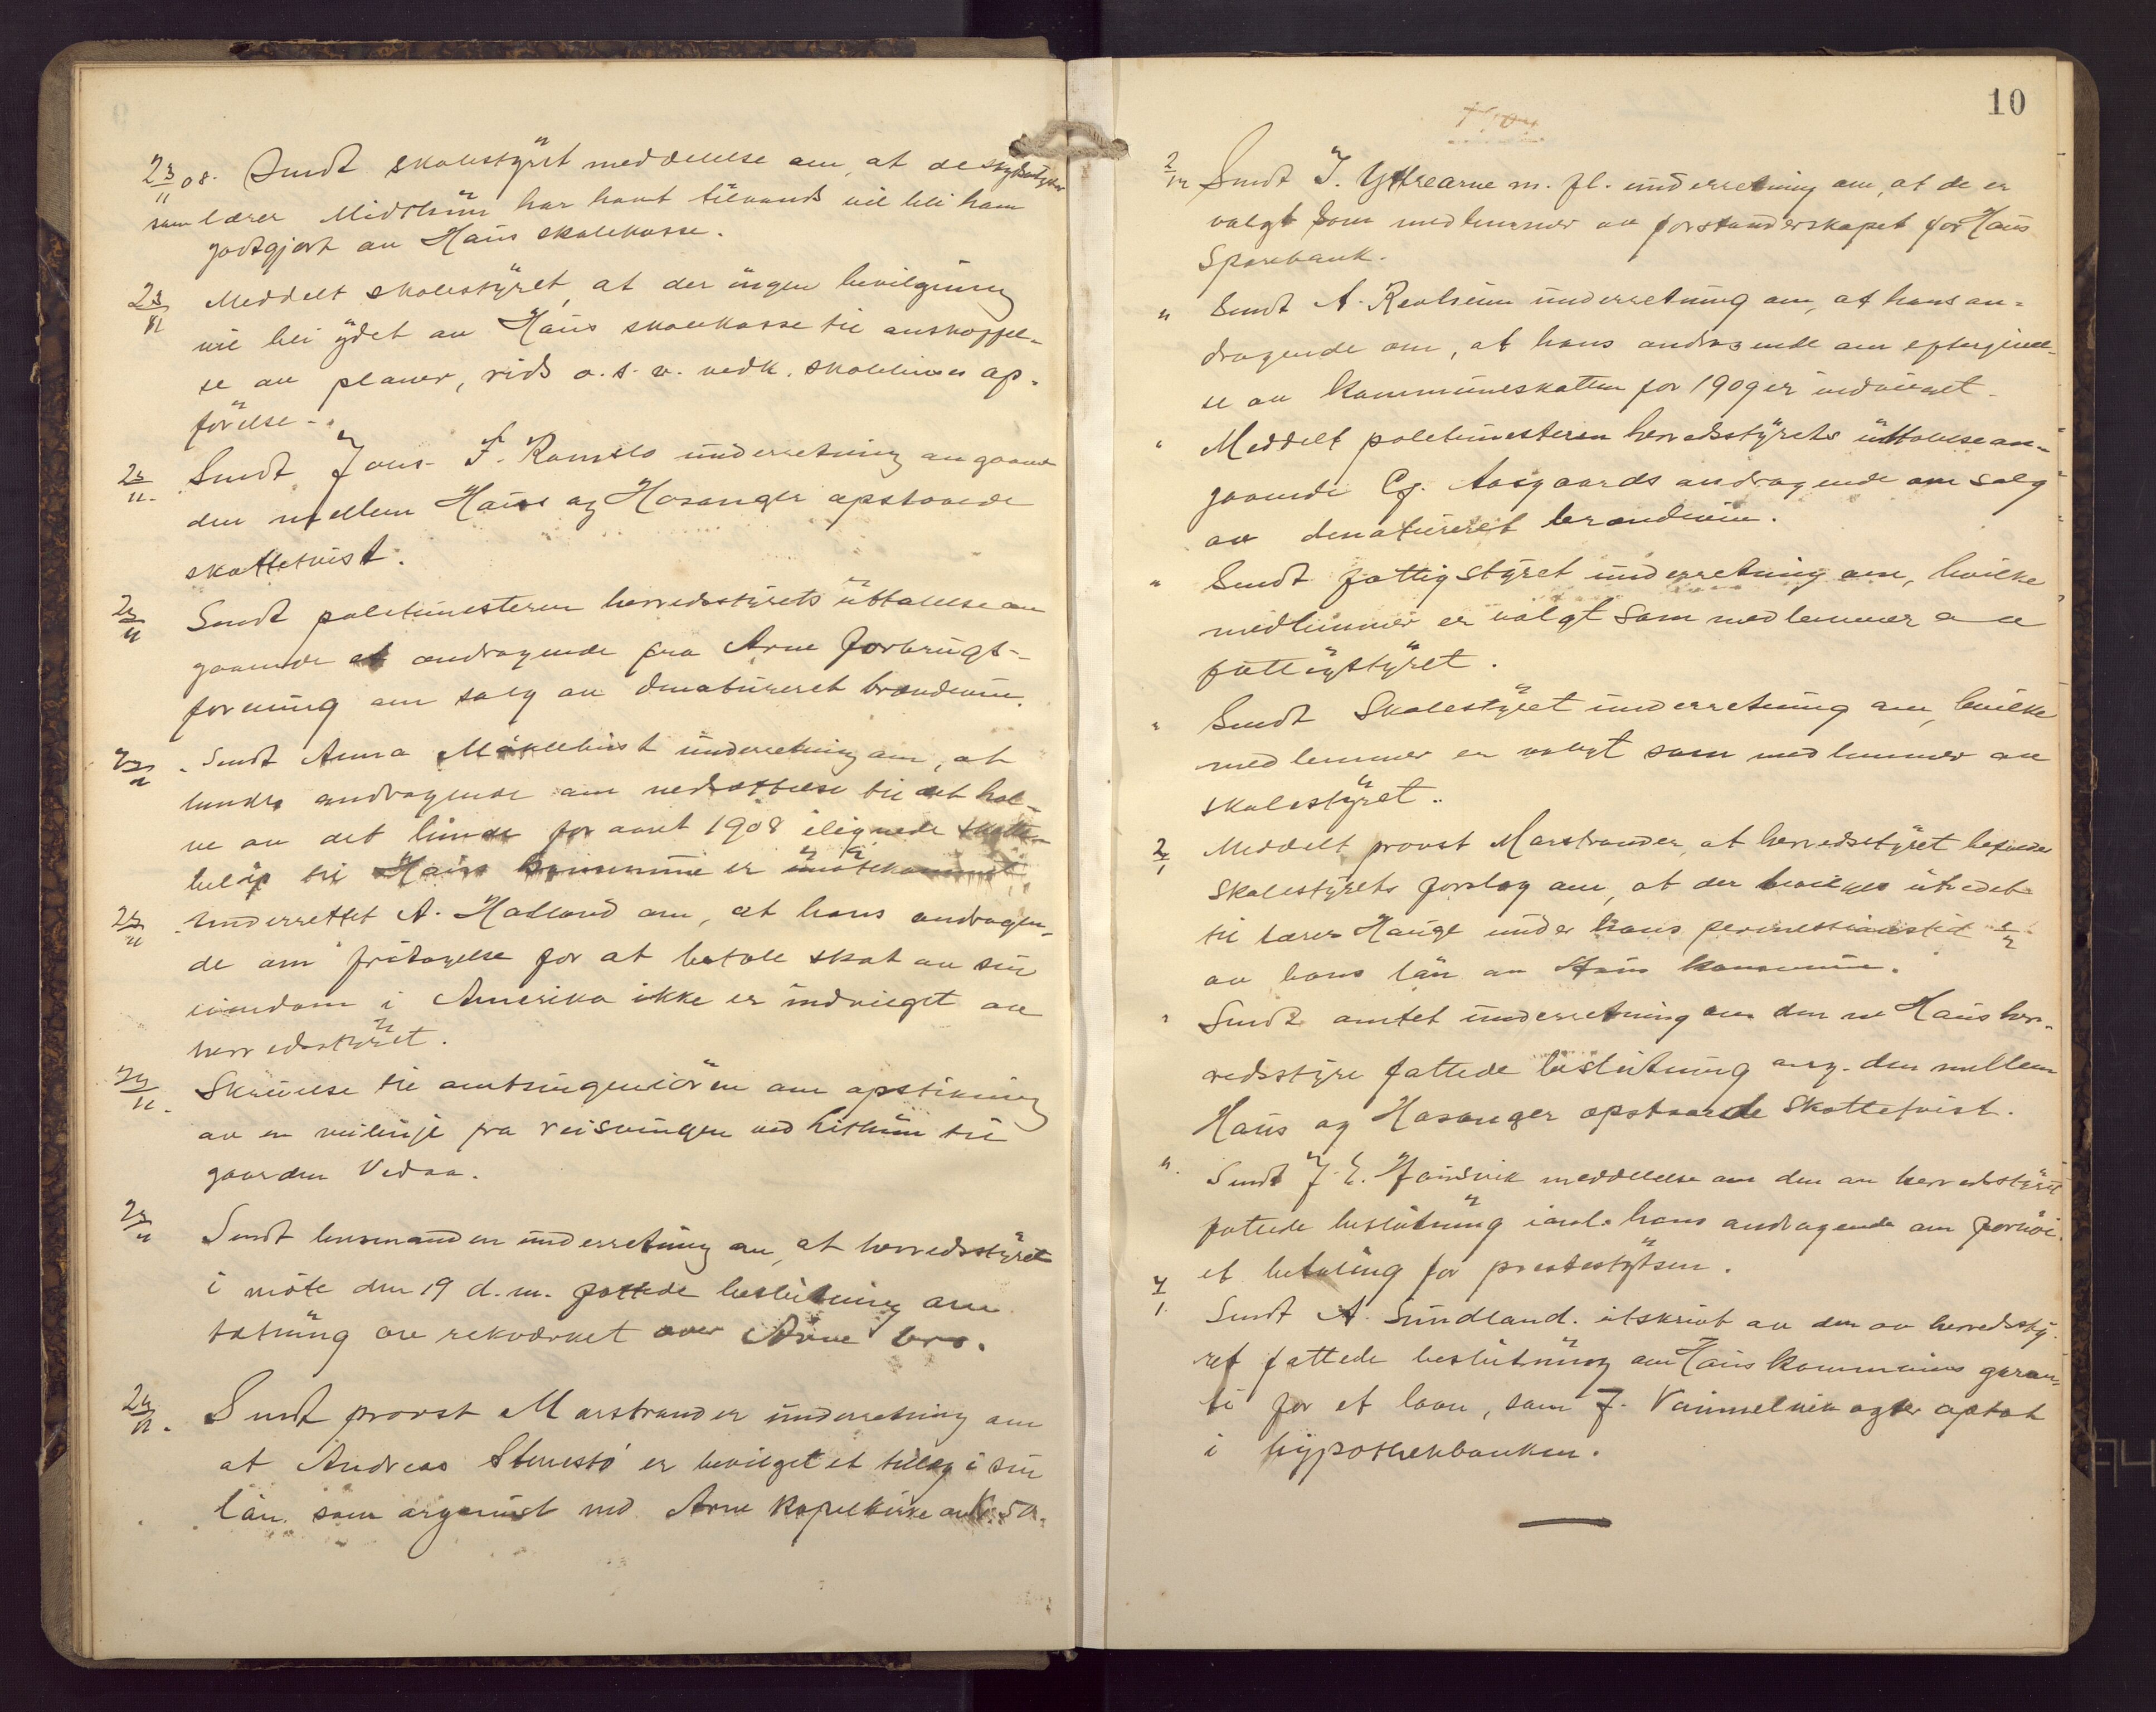 23/11 08. Sendt skolestyret meddelelse om, at de skydsutgifter
som lærer Midthun har havt tilvands vil bli ham
godtgjort av Haus skolekasse.
23/11 Meddelt skolestyret, at der ingen bevilgning
vil bli ydet av Haus skolekasse til anskaffel-
se av planer, rids o.s.v. vedk. skolehuses op-
førelse.
23/11. Sendt Johs. F. Romslo underretning angaaende
den mellem Haus og Hosanger opstaaede
skattetvist.
23/11 Sendt politimesteren herredsstyrets uttalelse an
gaaende et andragende fra Arne Forbrugs-
forening om salg av denatureret brændevin.
24/11 Sendt Anna Mjeldheim underretning om, at
hendes andragende om nedsættelse til det hal-
ve av det hende for aaret 1908 ilignede skatte-
beløp til Haus kommune er imøtekommet.
24/11 Underrettet A. Hatland om, at hans andragen-
de om fritagelse for at betale skat av sin
eiendom i Amerika ikke er indvilget av
herredsstyret.
24/11. Skrivelse til amtsingeniøren om opstikning
av en veilinje fra veisvingen ved Lithun til
gaarden Vedaa.
24/11 Sendt lensmanden underretning om, at herredsstyret
i møte den 19 d.m. fattede beslutning om
tætning av rekværket over Arne bro.
24/11. Sendt provst Marstrander underretning om
at Andreas Stenestø er bevilget et tillæg i sin
løn som organist ved Arne kapelkirke av Kr. 50.
10
2/12 Sendt I. Yttrearne m. fl. underretning om, at de er
valgt som medlemmer av forstanderskapet for Haus
Sparebank.
" Sendt A. Revheim underretning om, at hans an-
dragende om, at hans andragende om eftergivel-
se av kommuneskatten for 1909 er indvilget.
" Meddelt politimesteren herredsstyrets uttalelse an-
gaaende Aasgaards andragende om salg
av denatureret brændevin.
" Sendt fattigstyret underretning om, hvilke
medlemmer er valgt som medlemmer av
fattigstyret.
" Sendt Skolestyret underretning om, hvilke
medlemmer er valgt som medlemmer av
skolestyret.
2/1 Meddelt provst Marstrander, at herredsstyret
Skolestyrets forslag om, at der bevilges utredet
til lærer Hauge under hans permissionstid
av hans løn av Haus kommune.
" Sendt amtet underretning om den av Haus her-
redsstyre fattede beslutning ang. den mellem
Haus og Hosanger opstaaede skattetvist.
" Sendt J. E. meddelelse om den av herredsstyret
fattede beslutning hans andragende om forhøi-
et betaling for presteskydsen.
4/1. Sendt A. Sundland. utskrivt av den av herredssty-
ret fattede beslutning om Haus kommunes garan-
ti for et laan, som J. Vammelvik agter optat
i hypothekbanken.